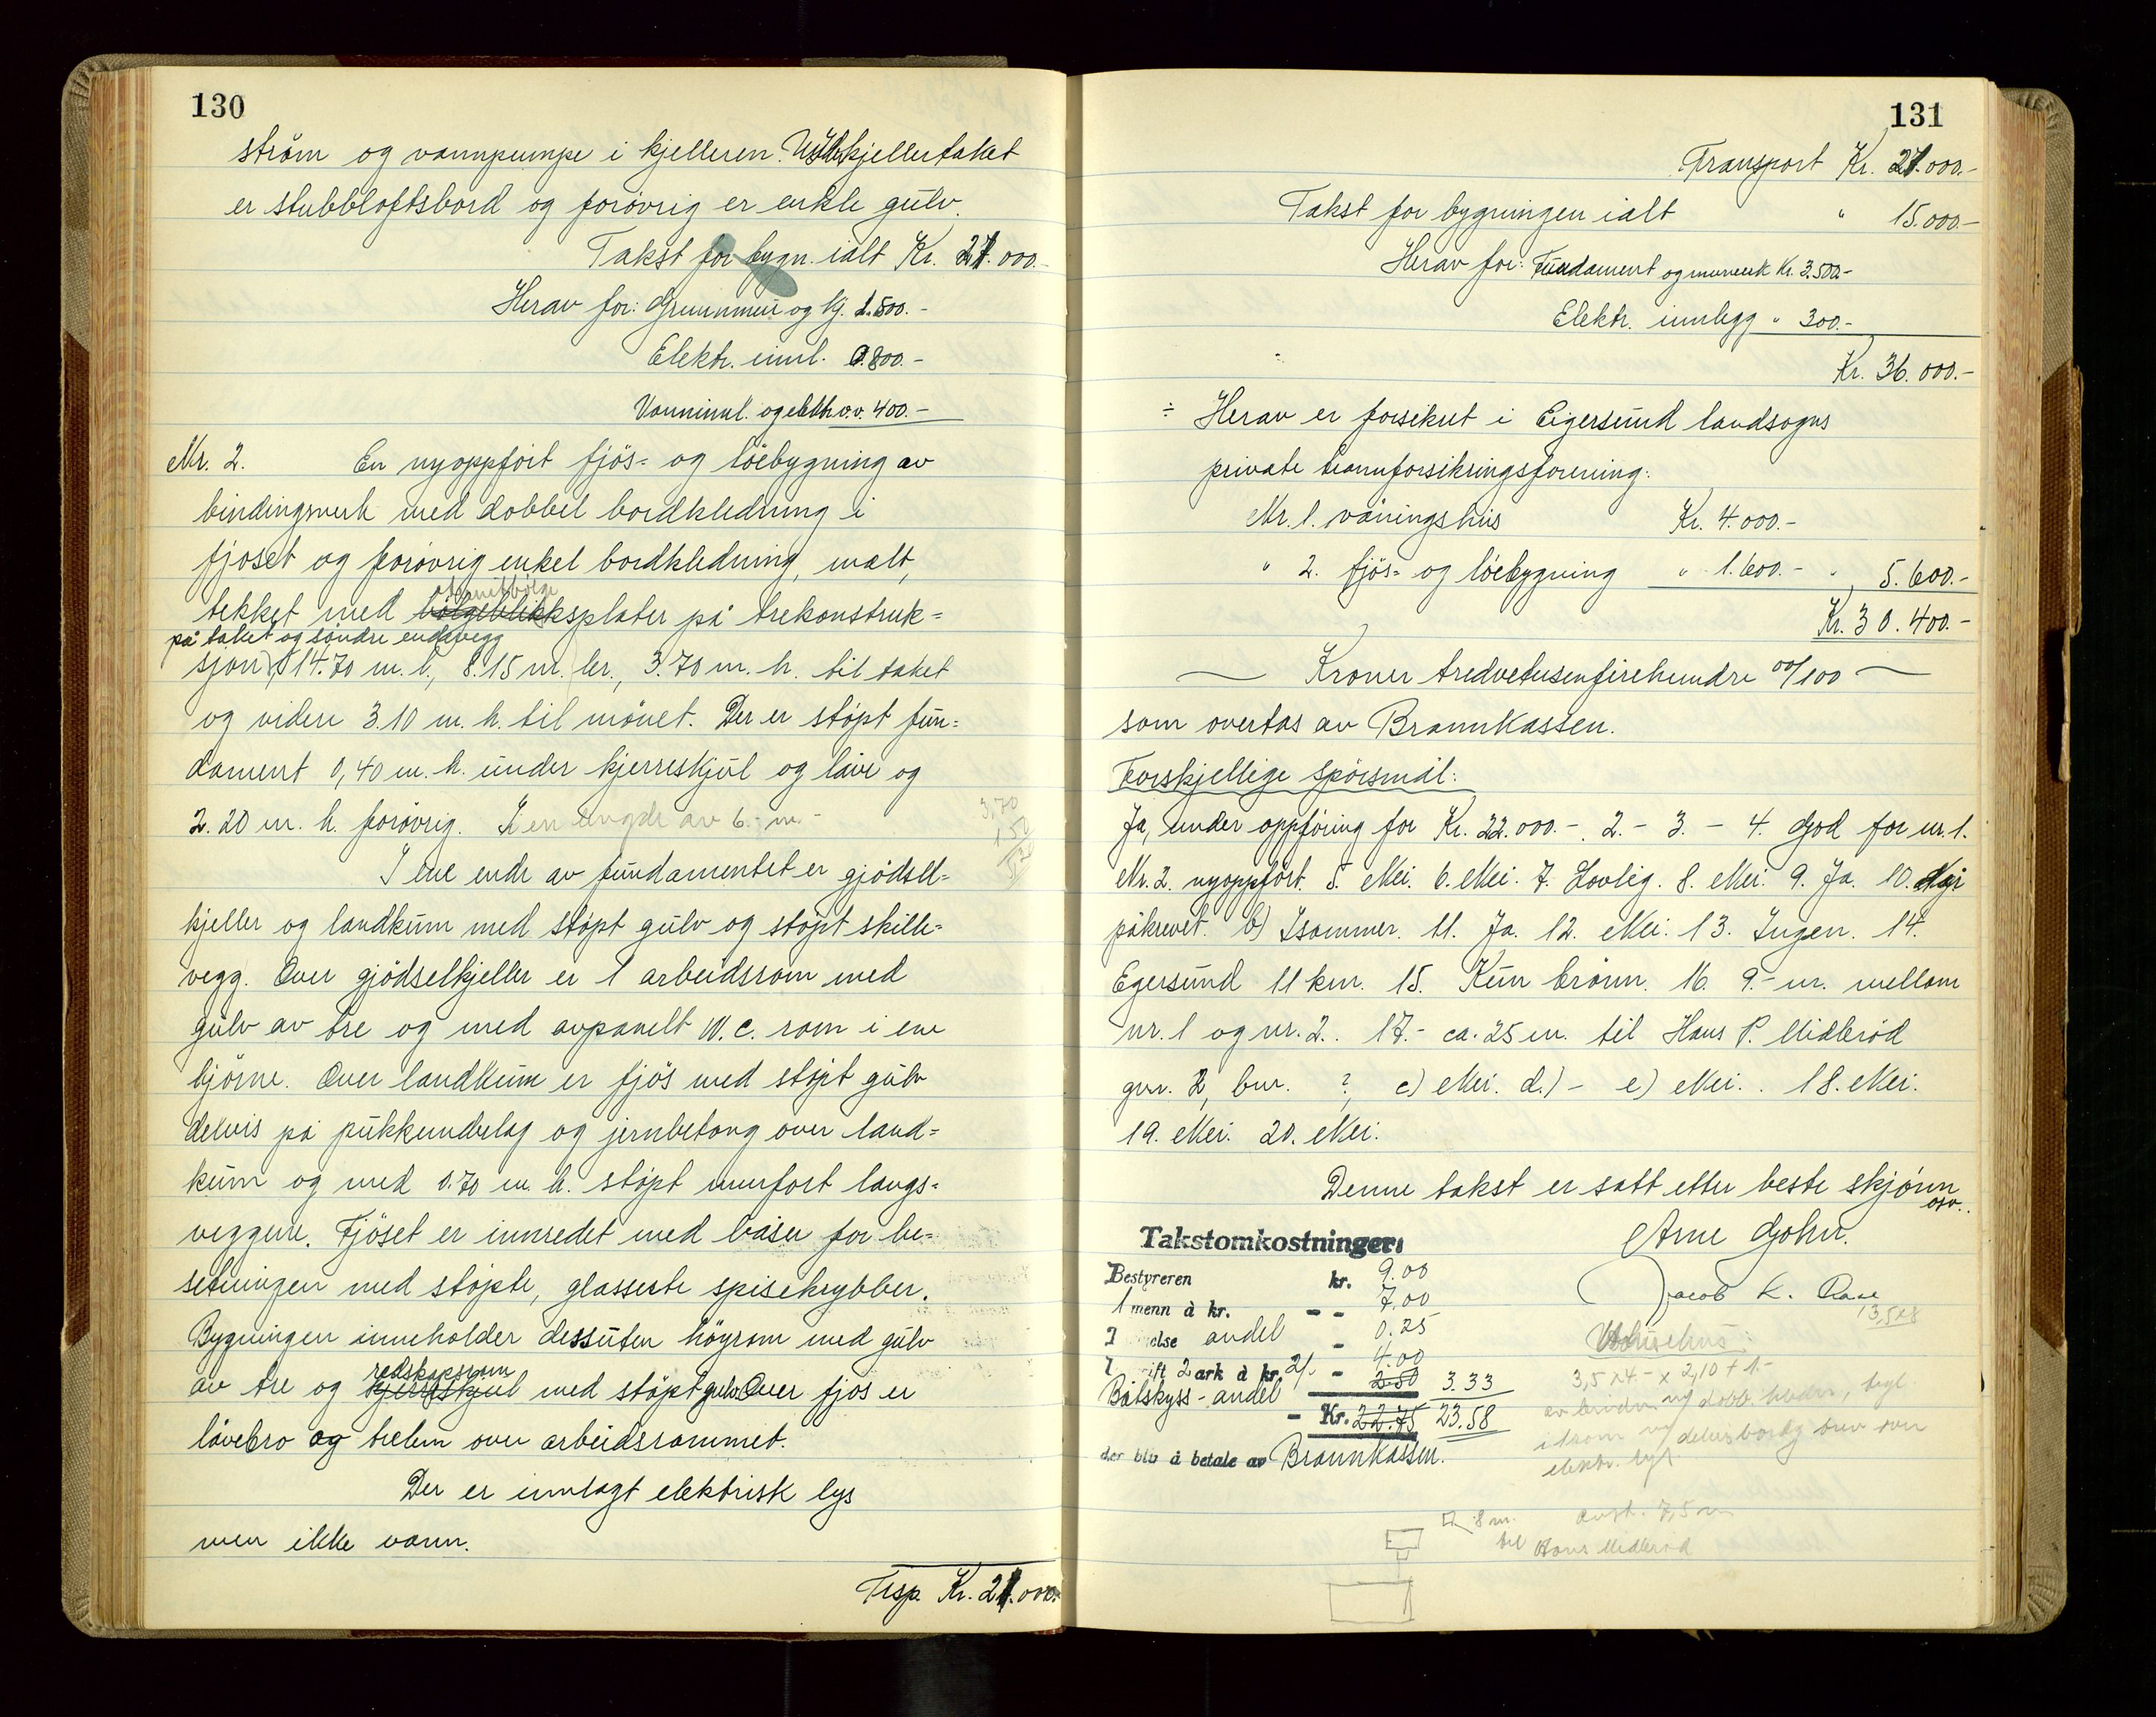 130
ström og vannpumpe i kjelleren. Under kjellertaket
er stubbloftsbord og forövrig er enkle gulv.
Takst for bygn. ialt Kr. 21.000.-
Herav for: Grunnmur og kj. 1.500.-
Elektr. innl. 800.-
Vanninnl. og elektr. v.v. 400.-
Nr. 2. En nyoppfört fjös- og löebygning av
bindingsverk med dobbel bordkledning i
fjöset og forövrig enkel bordkledning, malt,
eternittbölge
tekket med bölgeblikksplater på trekonstruk=
på taket og söndre endevegg
sjon, 14.70 m. l., 8.15 m. br., 3.70 m. h. til taket
og videre 3.10 m. h. til mönet. Der er stöpt fun=
dament 0,40 m. h. under kjerreskjul og låve og
2.20 m. h. forövrig. I en lengde av 6.- m.-
3,70
1,50
I ene ende av fundamentet er gjödsel=
kjeller og landkum med stöpt gulv og stöpt skille=
vegg. Over gjödselkjeller er 1 arbeidsrom med
gulv av tre og med avpanelt W.C. rom i ene
hjörne. Over landkum er fjös med stöpt gulv
delvis på pukkunderlag og jernbetong over land=
kum og med 0.70 m. h. stöpt murfort langs=
veggene. Fjöset er innredet med båser for be=
setningen med stöpte, glasserte spisekrybber.
Bygningen inneholder dessuten höyrom med gulv
redskapsrom
av tre og kjerreskjul med stöpt gulv. Over fjös er
låvebro og trelem over arbeidsrommet.
Der er innlagt elektrisk lys
men ikke vann.
Trsp. Kr. 21.000.-
131
Transport Kr. 21.000.-
Takst for bygningen ialt " 15.000.-
Herav for: Fundament og murverk Kr. 3.500.-
Elektr. innlegg " 300.-
Kr. 36.000.-
÷ Herav er forsikret i Eigersund landsogns
private brannforsikringsforening:
Nr. 1. våningshus Kr. 4.000.-
" 2. fjös- og löebygning " 1.600.- " 5.600.-
Kr. 30.400.-
Kroner tredvetusenfirehundre 00/100
som overtas av Brannkassen.
Forskjellige spörsmål:
Ja, under oppföring for Kr. 22.000.-. 2.- 3.- 4. God for nr. 1.
Nr. 2. nyoppfört. 5. Nei. 6. Nei. 7. Lovlig. 8. Nei. 9. Ja. 10. Nei
påkrevet. b) I sommer. 11. Ja. 12. Nei. 13. Ingen. 14.
Egersund 11 km. 15. Kun brönn. 16. 9.- m. mellom
nr. 1 og nr. 2. 17.- ca. 25 m. til Hans P. Midbröd
gnr. 2, bnr. ?, c) Nei. d.)- e) Nei. 18. Nei.
19. Nei. 20. Nei.
Denne takst er satt etter beste skjönn
osv.
Takstomkostninger: Arne Gohn.
Bestyreren kr. 9.00
Jacob K.
1 menn à kr. - - 7.00
3,5x8
else andel - 0.25
Våningshus:
ift 2 ark à kr. 2/- - 4.00
3,5 x 4.- x 2,10 + 1.-
Båtskyss-andel 2.50 3.33
- Kr. 22.75 23.58
der bliv å betale av Brannkassen.
elektr. lys
8 m. avst. 7,5 m
til Hans Midbröd